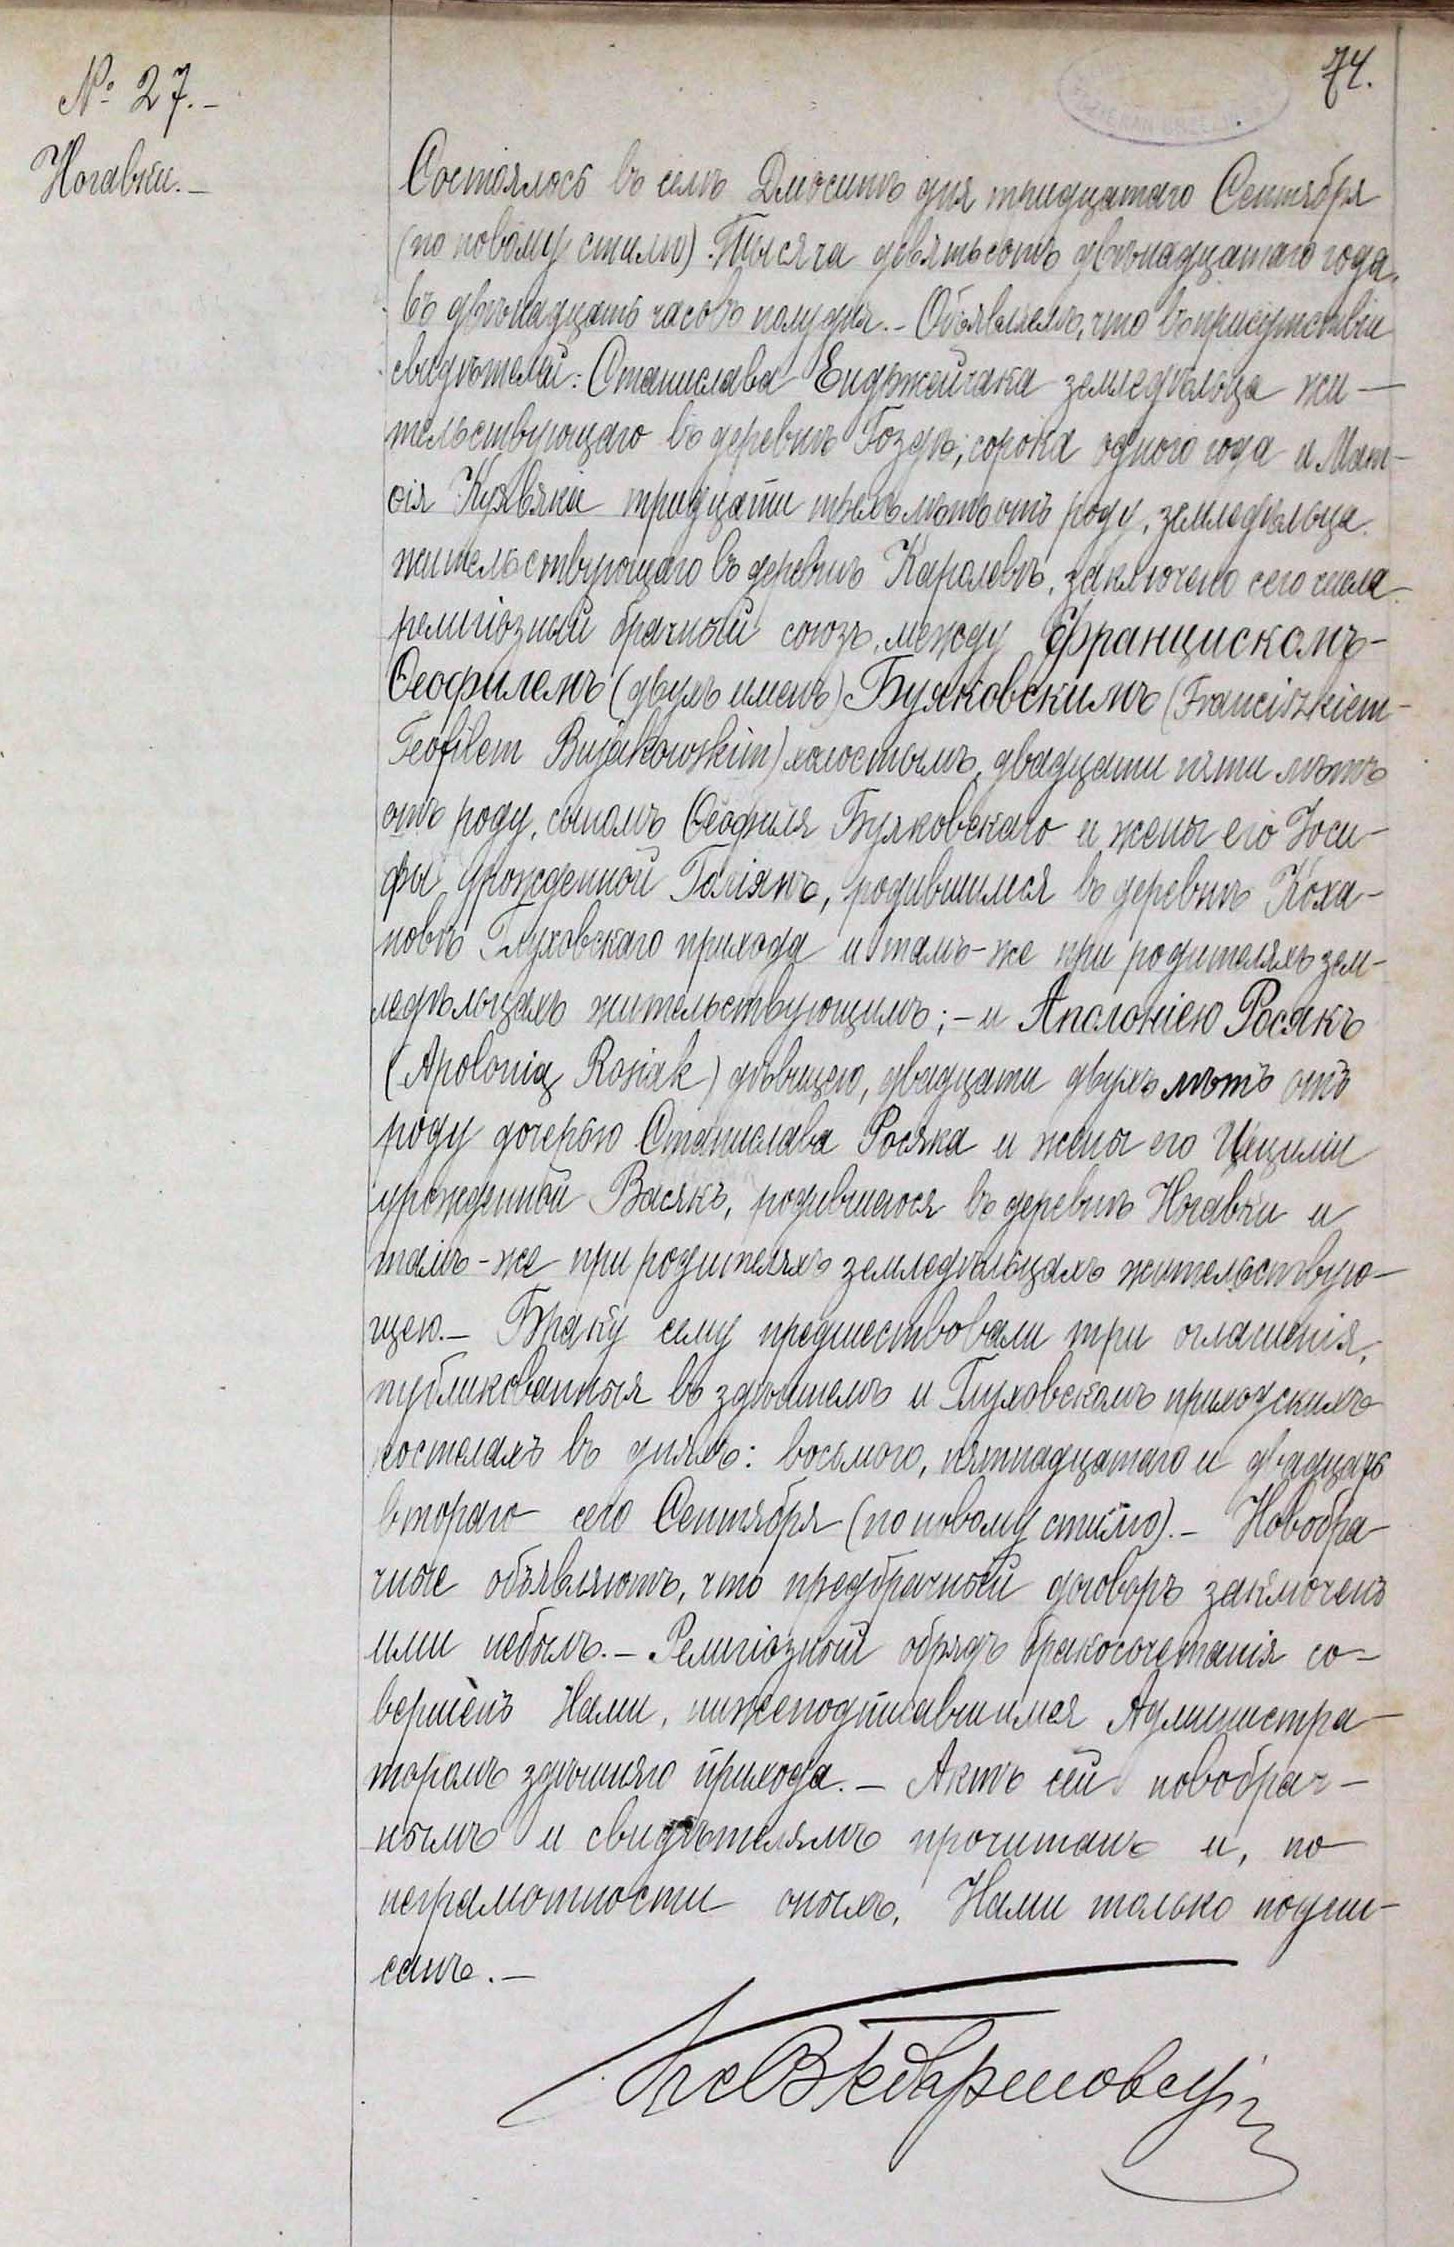 № 27.-
Ногавки.-
74.
Состоялось въ селѣ Дмосинѣ дня тридцатаго Сентября
(по новому стилю). Тысяча девятьсотъ двѣнадцатаго года,
въ двѣнадцать часовъ полудня.- Объявляемъ, что въ присутствіи
свидѣтелей: Станислава Енджейчака земледѣльца жи-
тельствующаго въ деревнѣ Гоздъ, сорока одного года и Мат-
ѳія Куявяка тридцати трехъ лѣтъ отъ роду, земледѣльца
жительствующаго въ деревнѣ Каролевъ, заключено сего числа
религіозный брачный союзъ, между Францискомъ-
Ѳеофилемъ (двухъ именъ) Буяковскимъ (Franciszkiem-
Teofilem Bujakowskim) холостымъ, двадцати пяти лѣтъ
отъ роду, сыномъ Ѳеофиля Буяковскаго и жены его Іоси-
фы урожденной Галіянъ, родившимся въ деревнѣ Коха-
новъ Глуховскаго прихода и тамъ-же при родителяхъ зем-
ледѣльцахъ жительствующимъ;- и Аполоніею Росякъ
(Apolonią Rosiak) дѣвицею, двадцати двухъ лѣтъ отъ
роду дочерью Станислава Росяка и жены его Цециліи
урожденной Васякъ, родившеюся въ деревнѣ Ногавки и
тамъ-же при родителяхъ земледѣльцахъ жительствую-
щею.- Браку сему предшествовали три оглашенія,
публикованныя въ здѣшнемъ и Глуховскомъ приходскихъ
костелахъ въ дняхъ: восьмого, пятнадцатаго и двадцать
втораго сего Сентября (по новому стилю).- Новобра-
чные объявляютъ, что предбрачный договоръ заключенъ
ими небылъ.- Религіозный обрядъ бракосочетанія со-
вершенъ Нами, нижеподписавшимся Администра-
торомъ здѣшняго прихода.- Актъ сей новобрач-
нымъ и свидѣтелямъ прочитанъ и, по
неграмотности оныхъ, Нами только подпи-
санъ.-